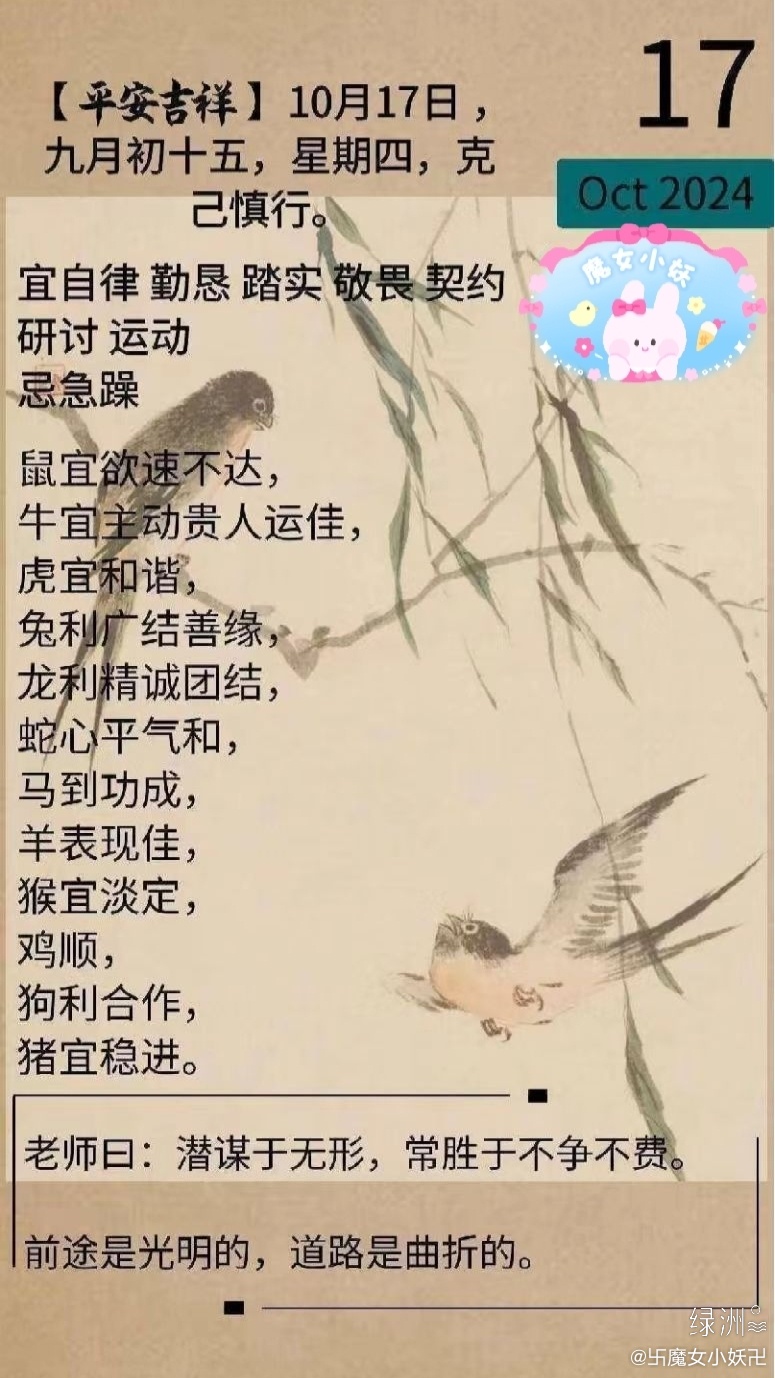 17
【平安吉祥】10月17日，
九月初十五，星期四，克
己慎行。
Oct 2024
魔女小妖
宜自律 勤恳 踏实 敬畏 契约
研讨 运动
忌急躁
鼠宜欲速不达，
牛宜主动贵人运佳，
虎宜和谐，
兔利广结善缘，
龙利精诚团结，
蛇心平气和，
马到功成，
羊表现佳，
猴宜淡定，
鸡顺，
狗利合作，
猪宜稳进。
老师曰：潜谋于无形，常胜于不争不费。
前途是光明的，道路是曲折的。
绿洲
@卐魔女小妖卍